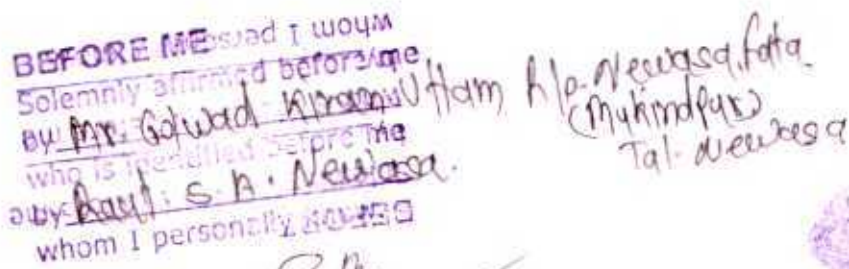 BEFORE ME
Solemnly affirmed before me
By Mr. Gaiwad Kiran Uttam R/o. Newasa fata
(Mukindpur)
Tal. Newasa
who is identified before me
by S. A. Newasa.
whom I personally